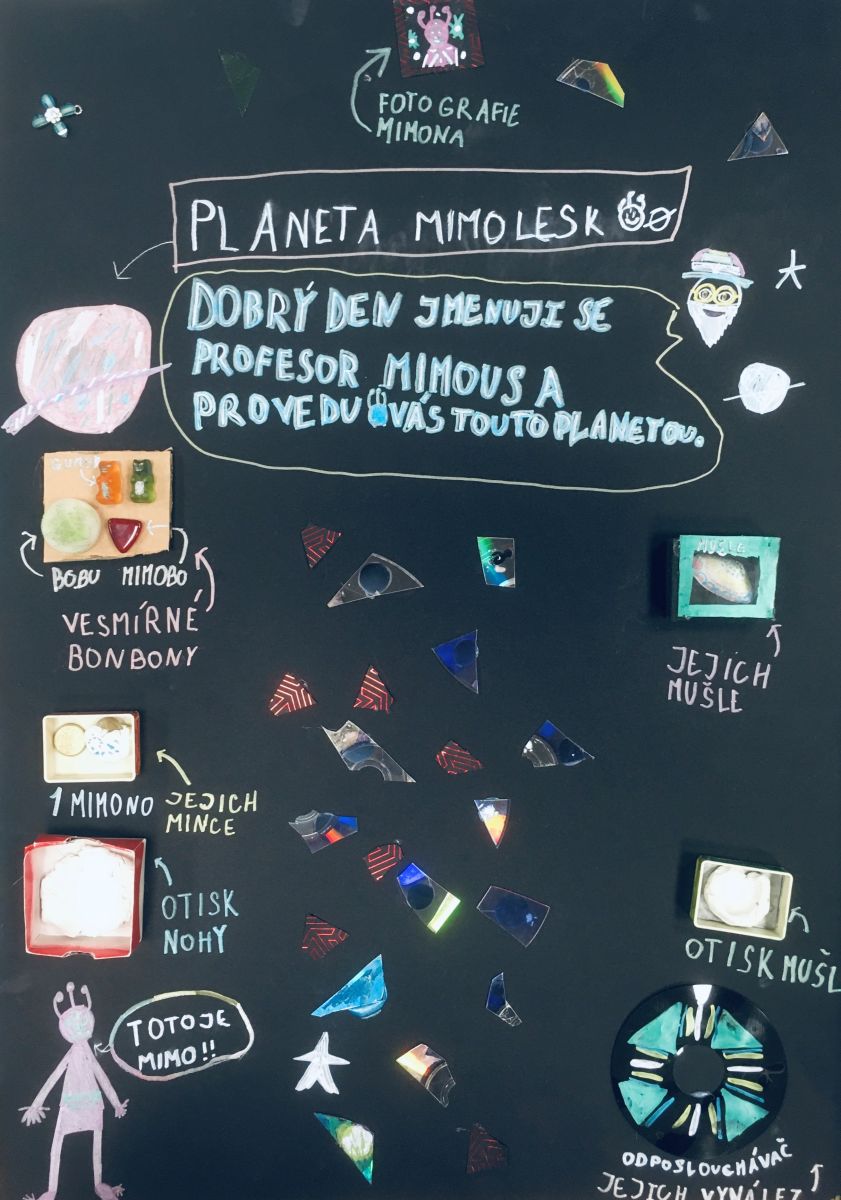 FOTOGRAFIE
MIMONA
PLANETA MIMOLESK
DOBRÝ DEN JMENUJI SE
PROFESOR MIMOUS A
PROVEDU VÁS TOUTO PLANETOU.
GUMÍD
BOBU MIMOBO
VESMÍRNÉ
BONBONY
MUŠLE
JEJICH
MUŠLE
1 MIMONO
JEJICH
MINCE
OTISK
NOHY
OTISK MUŠL
TOTO JE
MIMO!!
ODPOSLOUCHÁVAČ
JEJICH